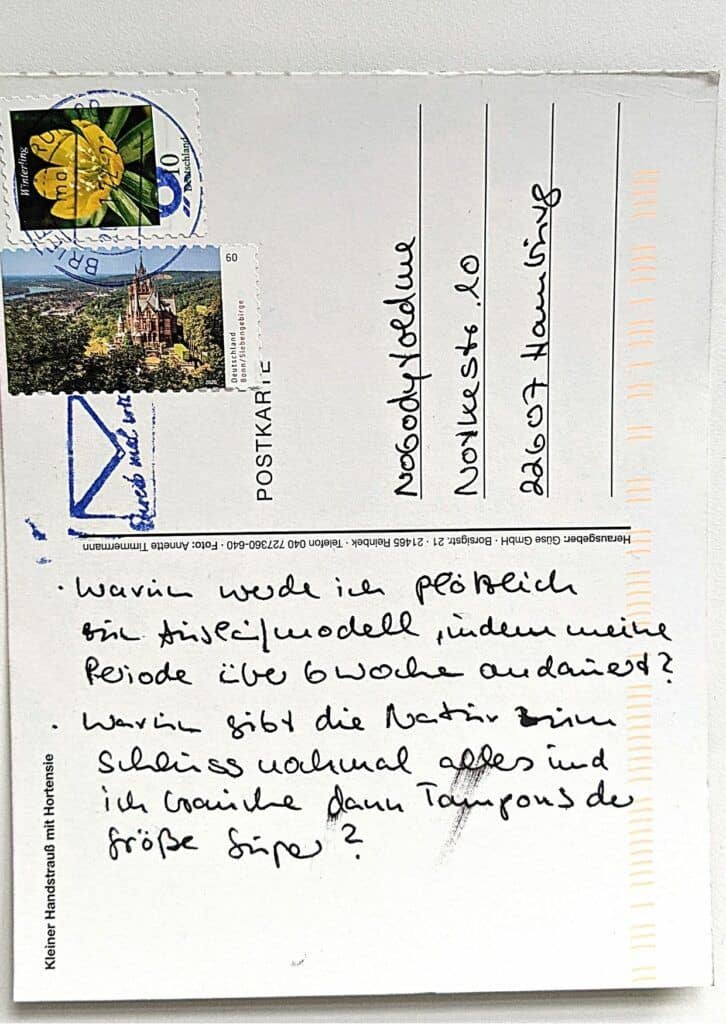 Winterling
10
Deutschland
60
Deutschland
Bonn/Siebengebirge
POSTKARTE
Nobodytoldme
Notkestr. 20
22607 Hamburg
Herausgeber: Güse GmbH · Borsigstr. 21 · 21465 Reinbek · Telefon 040 727360-640 · Foto: Annette Timmermann
· Warum werde ich plötzlich
zum Auslaufmodell, indem meine
Periode über 6 Woche andauert?
· Warum gibt die Natur zum
Schluss nochmal alles und
ich brauche dann Tampons der
Größe Super?
Kleiner Handstrauß mit Hortensie